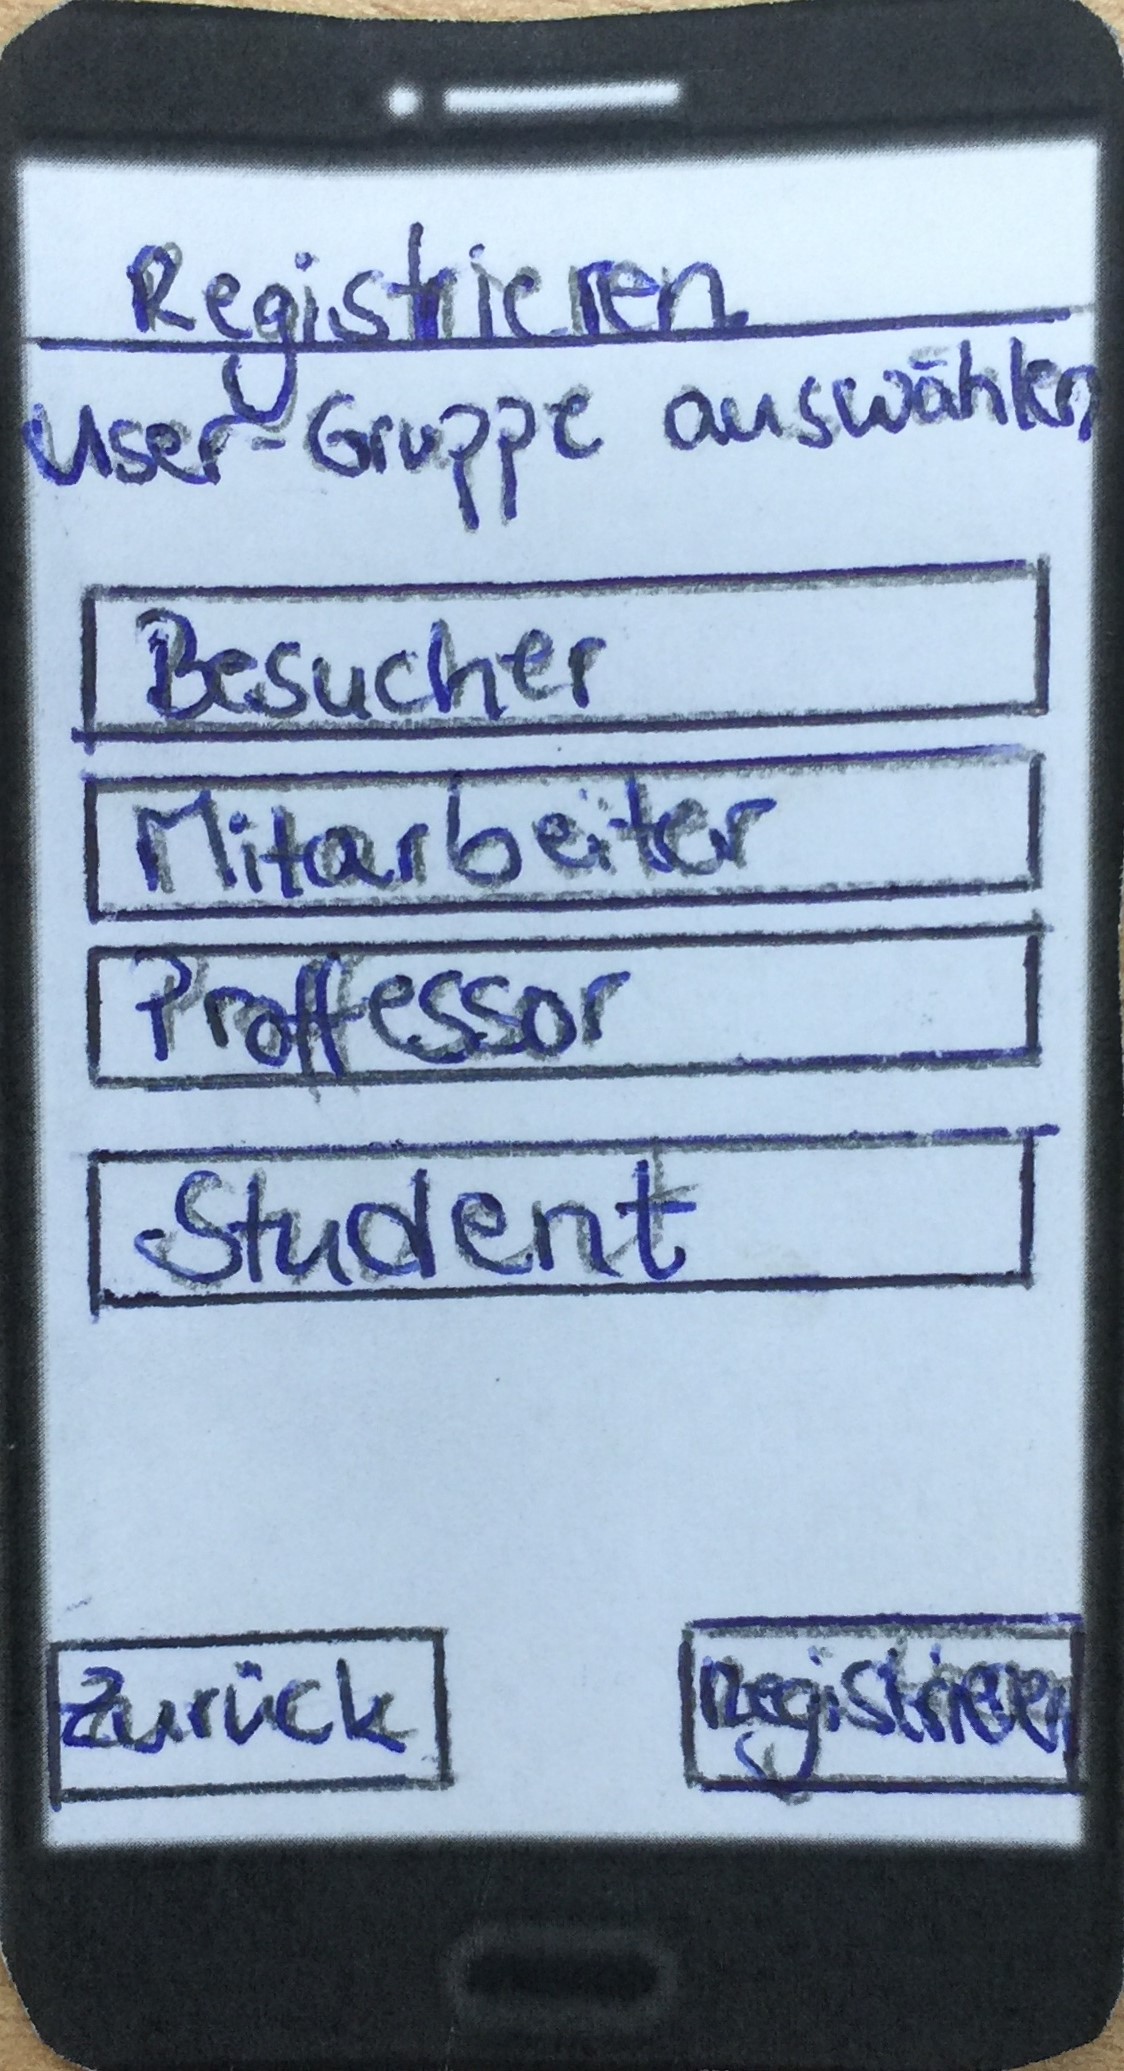 Registrieren
User-Gruppe auswählen
Besucher
Mitarbeiter
Proffessor
Student
Zurück
Registrieren